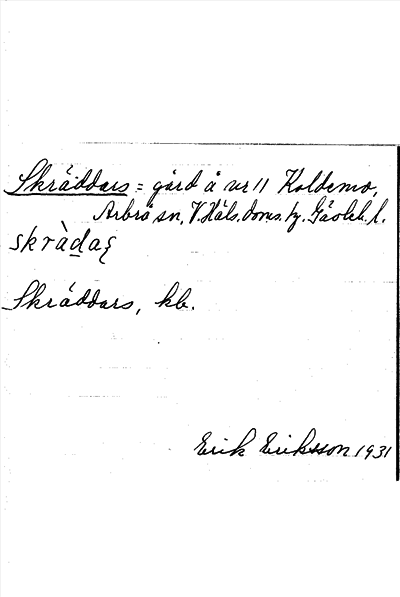 Skräddars = gård å nr 11 Koldemo,
Arbrå sn, V. Häls. doms. hg. Gävleb. l.
skràdaş
Skräddars, kb.
Erik Eriksson 1931